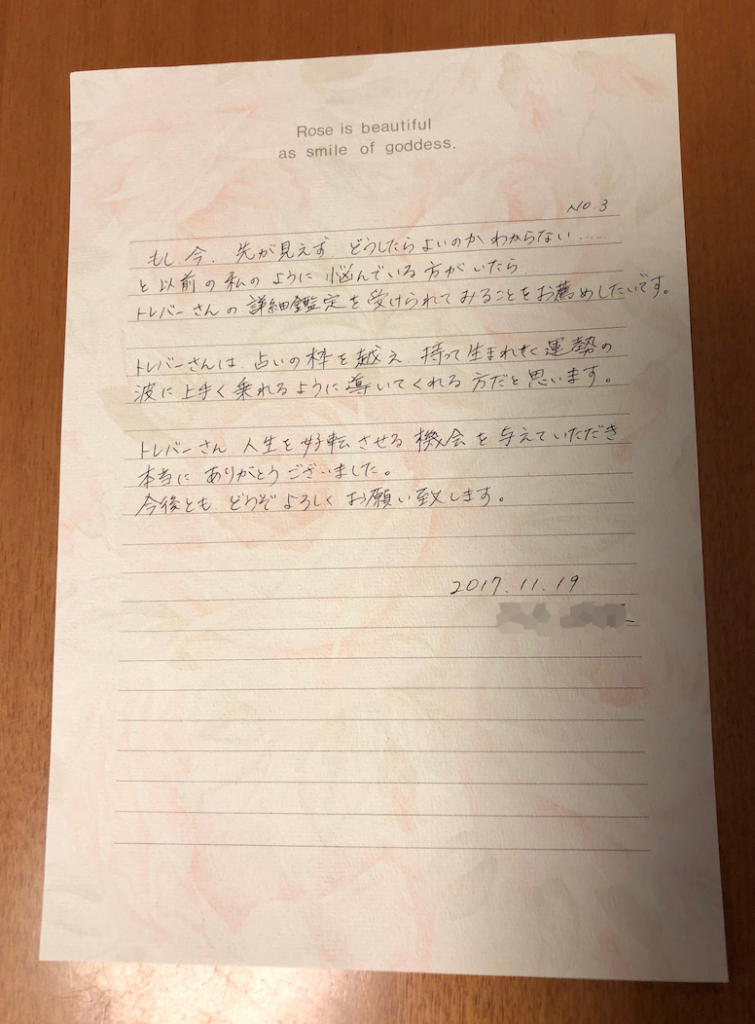 Rose is beautiful
as smile of goddess.
NO.3
もし 今、先が見えず どうしたらよいのか わからない……
と以前の私のように 悩んでいる方がいたら
トレバーさんの詳細鑑定を受けられてみることをお薦めしたいです。
トレバーさんは 占いの枠を越え 持って生まれた運勢の
波に上手く乗れるように導いてくれる方だと思います。
トレバーさん 人生を好転させる機会を与えていただき
本当に ありがとうございました。
今後とも どうぞよろしく お願い致します。
2017.11.19